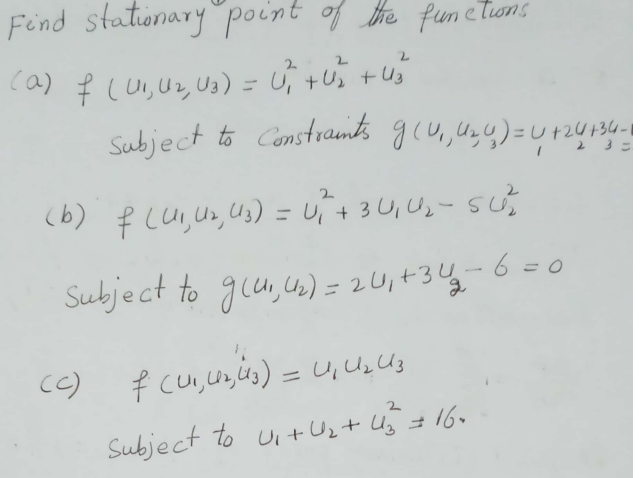 Find stationary point of the functions
(a) f(u₁,u₂,u₃) = u₁² + u₂² + u₃²
Subject to Constraints g(u₁,u₂,u₃) = u₁+2u₂+3u₃-
(b) f(u₁,u₂,u₃) = u₁² + 3u₁u₂ - 5u₂²
Subject to g(u₁,u₂) = 2u₁+3u₂-6=0
(c) f(u₁,u₂,u₃) = u₁u₂u₃
Subject to u₁+u₂+u₃² = 16.